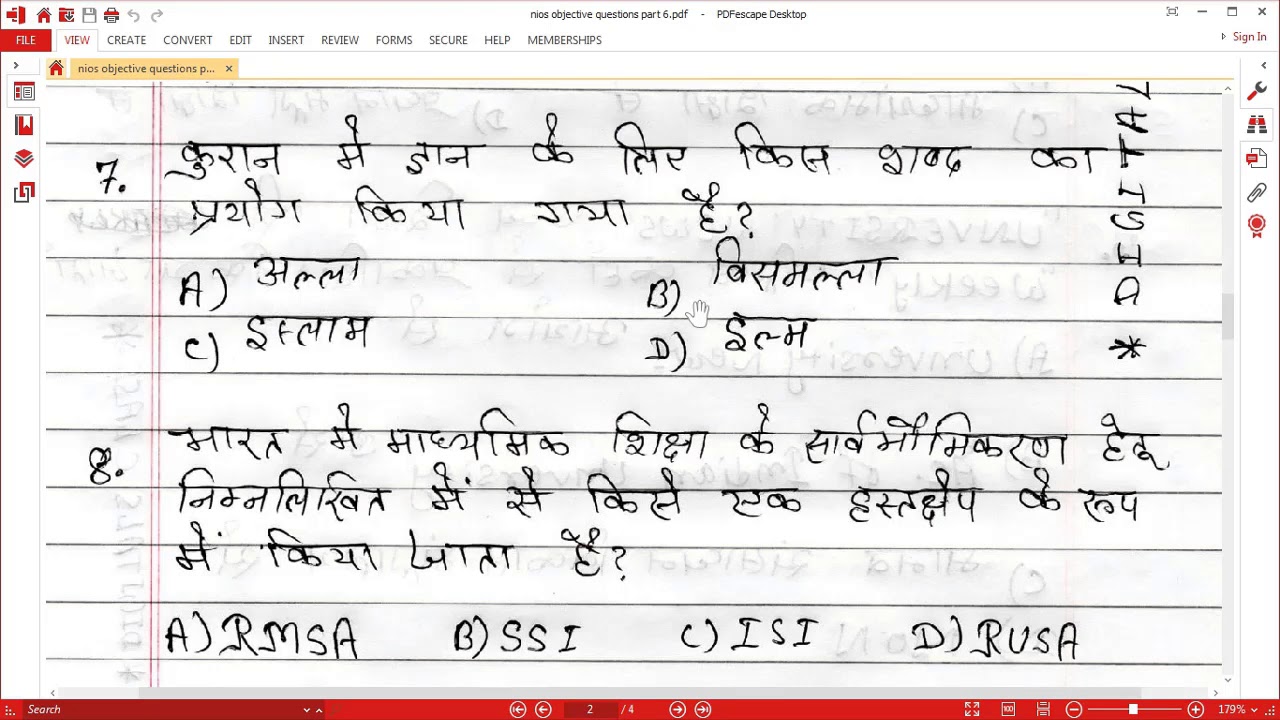 nios objective questions part 6.pdf - PDFescape Desktop
FILE VIEW CREATE CONVERT EDIT INSERT REVIEW FORMS SECURE HELP MEMBERSHIPS
Sign In
nios objective questions p... ×
7. कुरान मे ज्ञान के लिए किस शब्द का
प्रयोग किया गया है?
A) अल्ला B) बिसमल्ला
C) इस्लाम D) इल्म
8. भारत मे माध्यमिक शिक्षा के सार्वभौमिकरण हेतू
निम्नलिखित में से किसे एक हस्तक्षेप के रूप
में किया जाता है?
A) RMSA B) SSI C) ISI D) RUSA
Search 2 / 4 179%